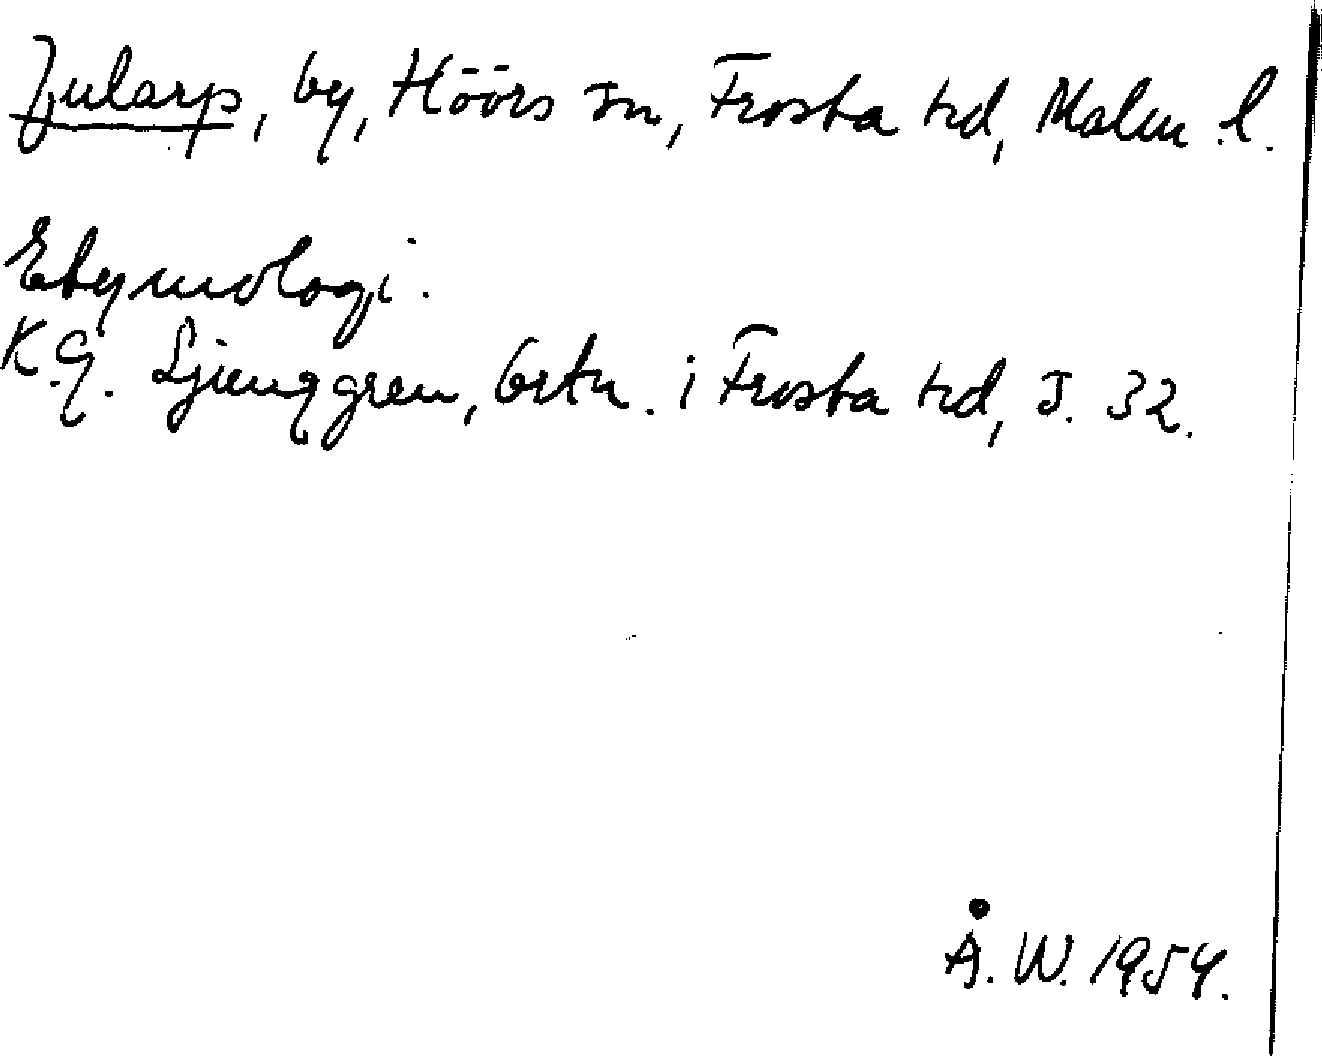 Jularp, by, Höörs sn, Frosta hd, Malm. l.
Etymologi.
K.G. Ljunggren, Ortn. i Frosta hd, s. 32.
Å. W. 1954.